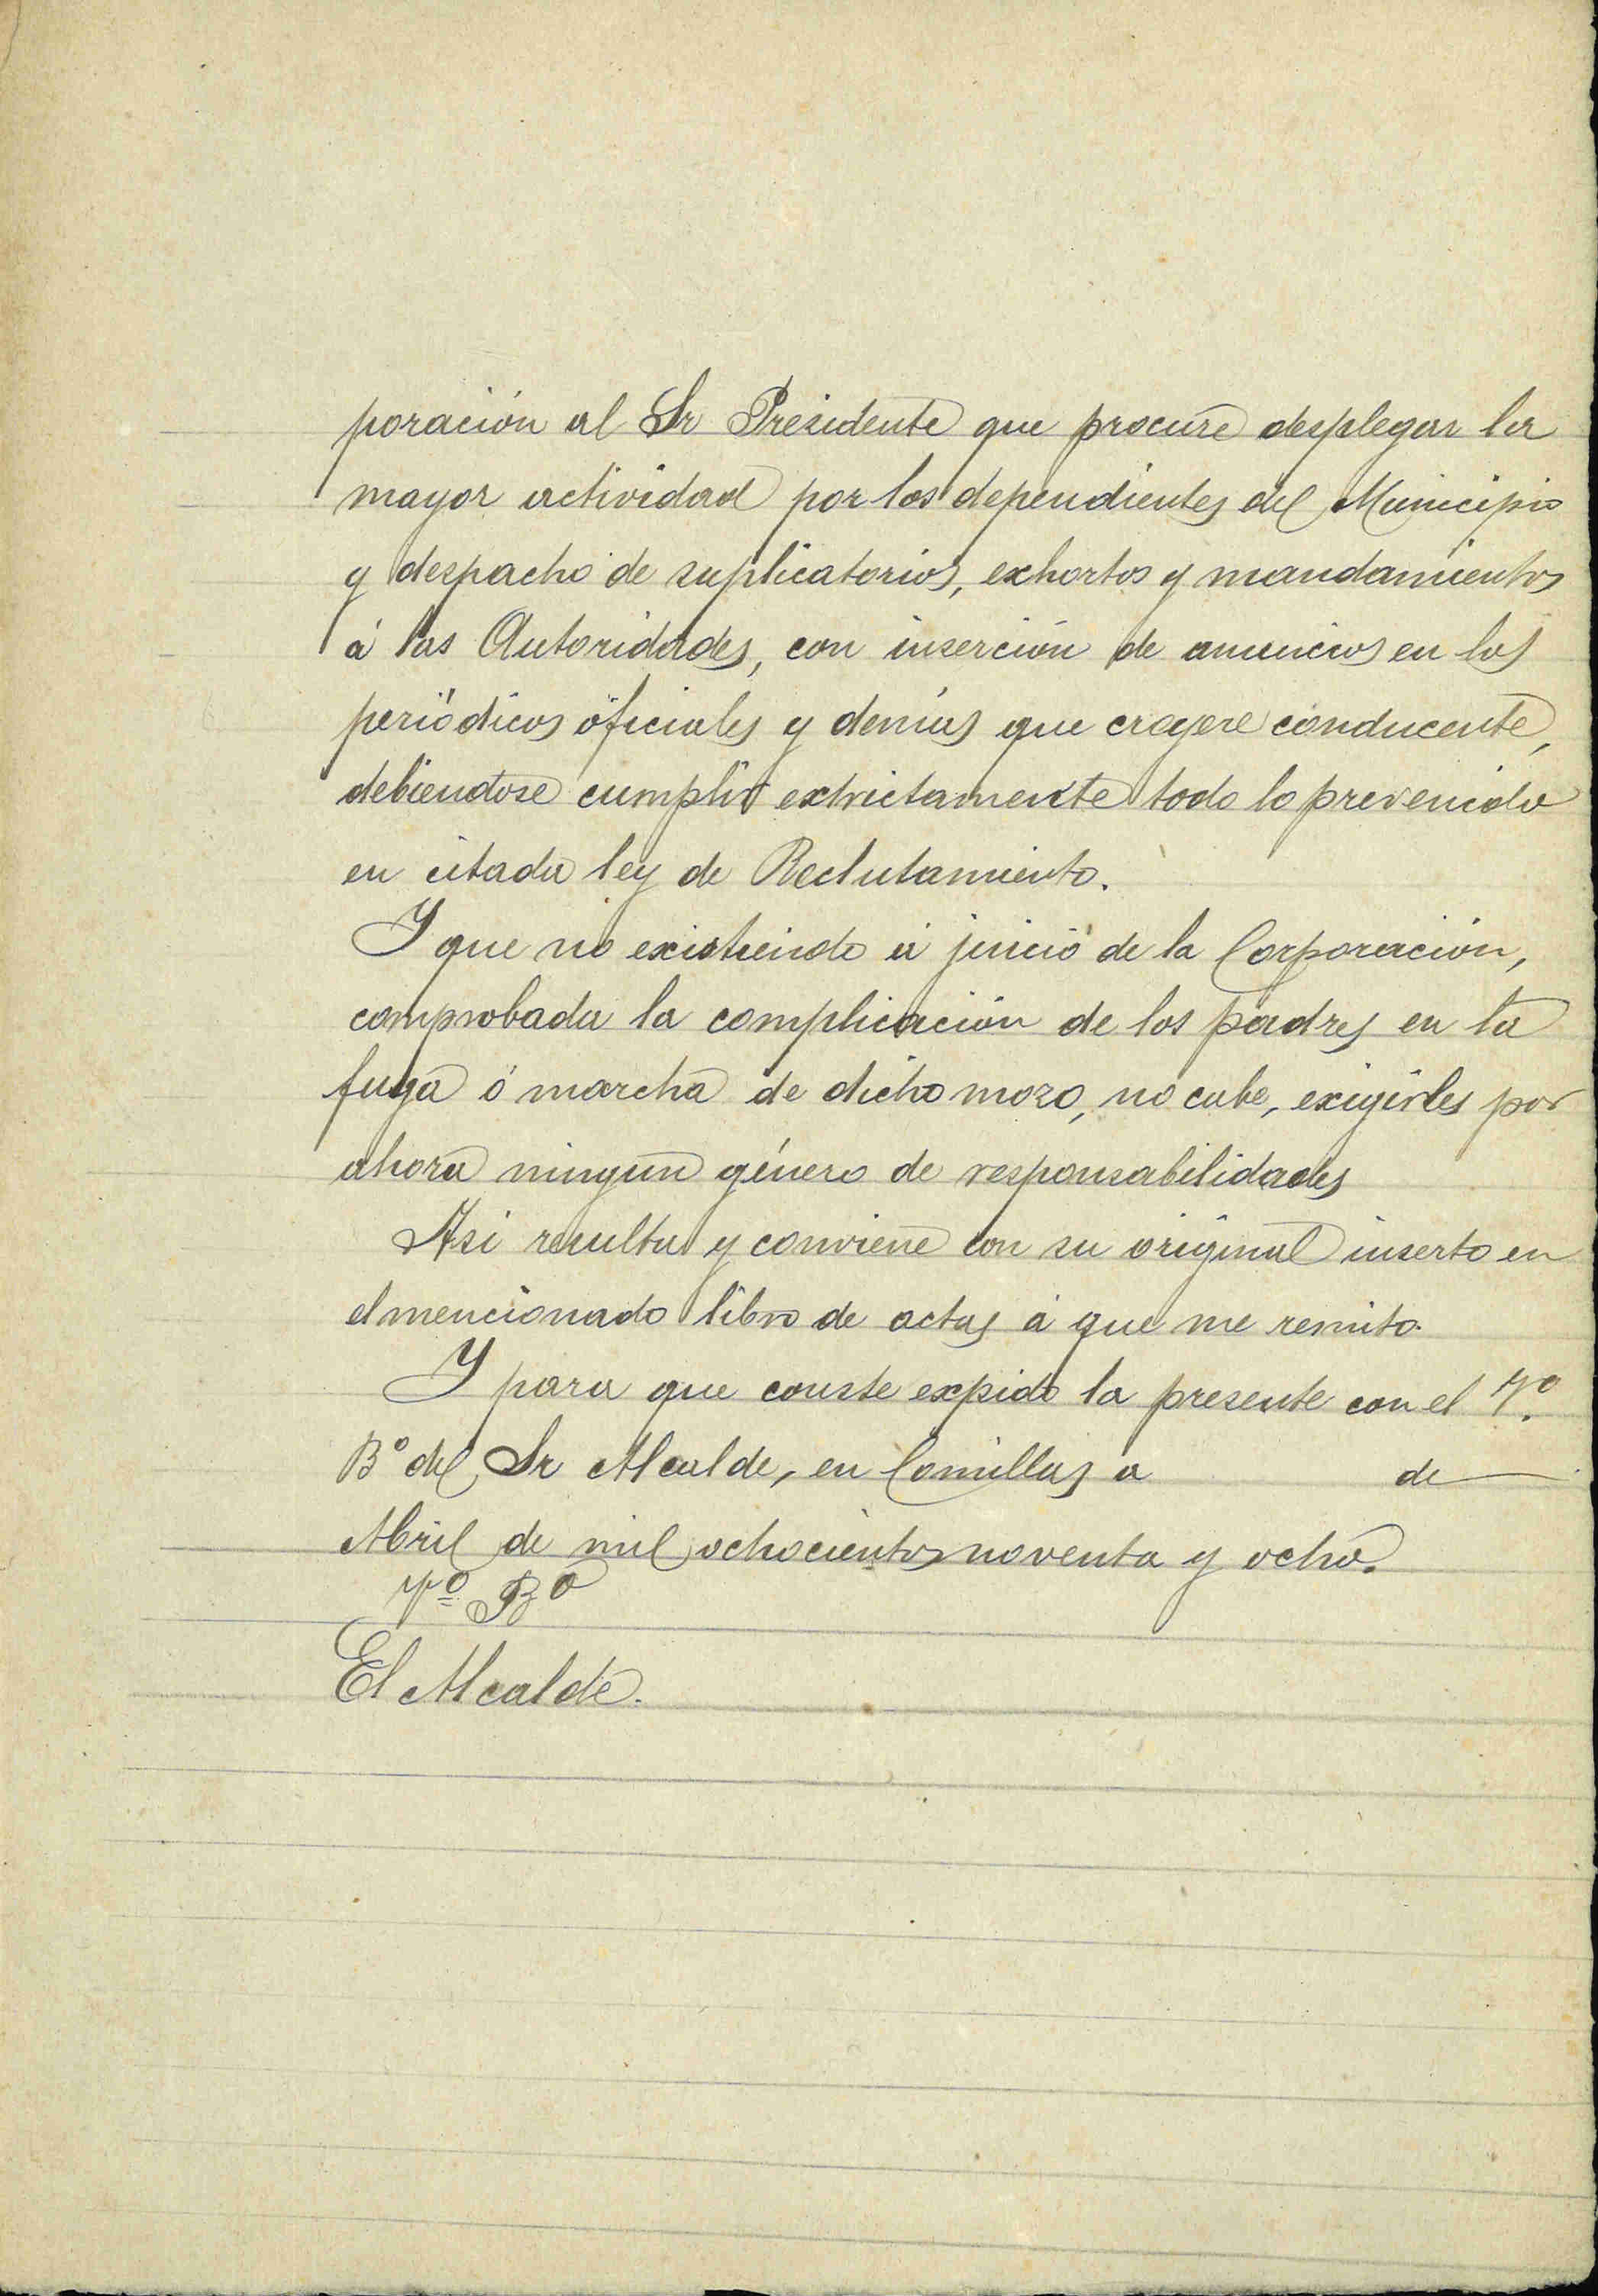 poración al Sr Presidente que procure desplegar la
mayor actividad por los dependientes del Municipio
y despacho de suplicatorios, exhortos y mandamientos
á las Autoridades, con inserción de anuncios en los
periódicos oficiales y demás que creyere conducente,
debiendose cumplir extrictamente todo lo prevenido
en citada ley de Reclutamiento.
Y que no existiendo á juicio de la Corporación,
comprobada la complicación de los padres en la
fuga ó marcha de dicho mozo, no cabe, exigirles por
ahora ningun género de responsabilidades
Asi resulta y conviene con su original inserto en
el mencionado libro de actas á que me remito.
Y para que conste expido la presente con el Vº.
Bº del Sr Alcalde, en Comillas a de
Abril de mil ochocientos noventa y ocho.
Vº Bº
El Alcalde.